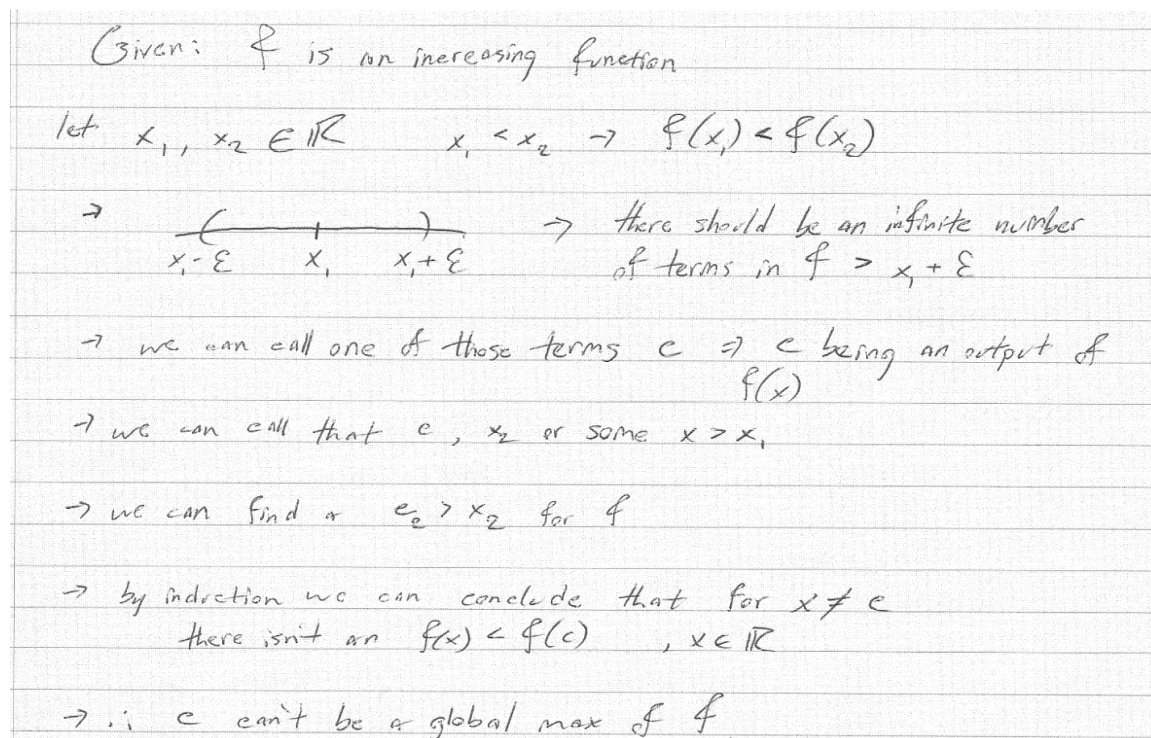 Given: f is an increasing function
let x₁, x₂ ∈ ℝ x₁ < x₂ → f(x₁) < f(x₂)
→ → there should be an infinite number
x₁-ε x₁ x₁+ε of terms in f > x₁ + ε
→ we can call one of those terms c ⇒ c being an output of
f(x)
→ we can call that c, x₂ or some x > x₁
→ we can find a c₂ > x₂ for f
→ by induction we can conclude that for x ≠ c
there isn't an f(x) < f(c) , x ∈ ℝ
→ ∴ c can't be a global max of f